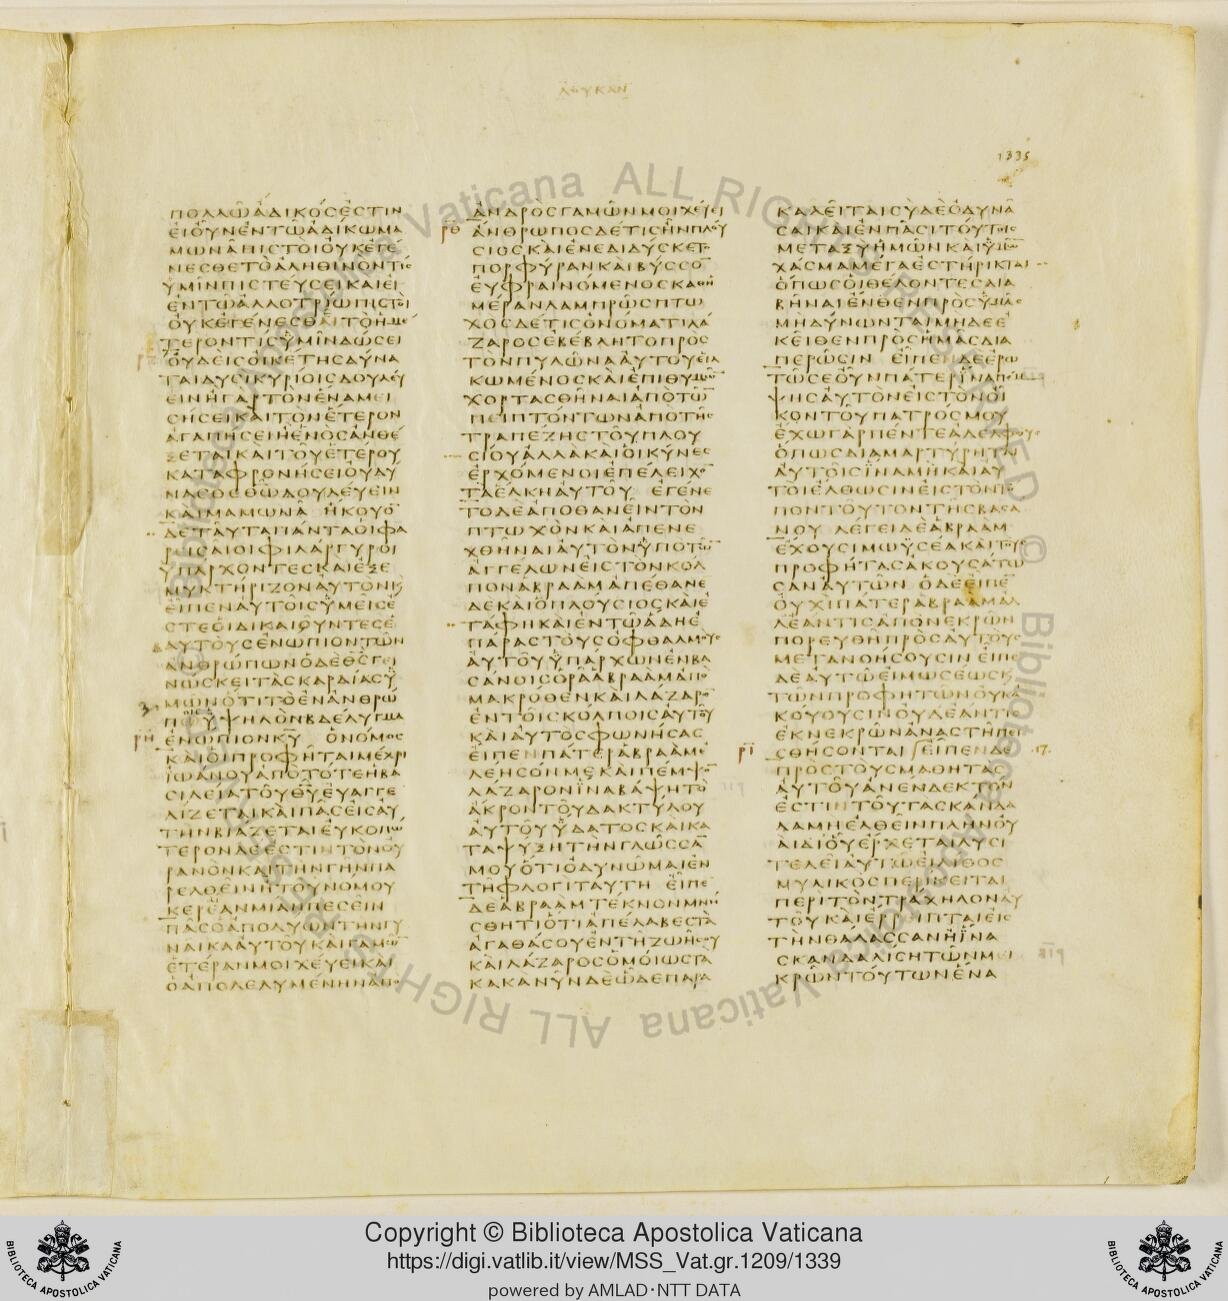 ΛΟΥΚΑΝ
1335
ΠΟΛΛΩΑΔΙΚΟϹΕϹΤΙΝ
ΕΙΟΥΝΕΝΤΩΑΔΙΚΩΜΑ
ΜΩΝΑΠΙϹΤΟΙΟΥΚΕΓΕ
ΝΕϹΘΕΤΟΑΛΗΘΙΝΟΝΤΙϹ
ΥΜΙΝΠΙϹΤΕΥϹΕΙΚΑΙΕΙ
ΕΝΤΩΑΛΛΟΤΡΙΩΠΙϹΤΟΙ
ΟΥΚΕΓΕΝΕϹΘΑΙΤΟΗΜΕ
ΤΕΡΟΝΤΙϹΥΜΙΝΔΩϹΕΙ
ΟΥΔΕΙϹΟΙΚΕΤΗϹΔΥΝΑ
ΤΑΙΔΥϹΙΚΥΡΙΟΙϹΔΟΥΛΕΥ
ΕΙΝΗΓΑΡΤΟΝΕΝΑΜΕΙ
ϹΗϹΕΙΚΑΙΤΟΝΕΤΕΡΟΝ
ΑΓΑΠΗϹΕΙΗΕΝΟϹΑΝΘΕ
ΞΕΤΑΙΚΑΙΤΟΥΕΤΕΡΟΥ
ΚΑΤΑΦΡΟΝΗϹΕΙΟΥΔΥ
ΝΑϹΘΕΘΩ̅ΔΟΥΛΕΥΕΙΝ
ΚΑΙΜΑΜΩΝΑ ΗΚΟΥΟ̅
ΔΕΤΑΥΤΑΠΑΝΤΑΟΙΦΑ
ΡΕΙϹΑΙΟΙΦΙΛΑΡΓΥΡΟΙ
ΥΠΑΡΧΟΝΤΕϹΚΑΙΕΞΕ
ΜΥΚΤΗΡΙΖΟΝΑΥΤΟΝϏ
ΕΙΠΕΝΑΥΤΟΙϹΥΜΕΙϹΕ
ϹΤΕΟΙΔΙΚΑΙΟΥΝΤΕϹΕ
ΑΥΤΟΥϹΕΝΩΠΙΟΝΤΩΝ
ΑΝΘΡΩΠΩΝΟΔΕΘ̅Ϲ̅ΓΕΙ
ΝΩϹΚΕΙΤΑϹΚΑΡΔΙΑϹΥ
ΜΩΝΟΤΙΤΟΕΝΑΝΘΡΩ
ΠΟΙϹΥΨΗΛΟΝΒΔΕΛΥΓΜΑ
ΡΗ ΕΝΩΠΙΟΝΚ̅Υ̅ ΟΝΟΜΟϹ
ΚΑΙΟΙΠΡΟΦΗΤΑΙΜΕΧΡΙ
ΙΩΑΝΟΥΑΠΟΤΟΤΕΗΒΑ
ϹΙΛΕΙΑΤΟΥΘ̅Υ̅ΕΥΑΓΓΕ
ΛΙΖΕΤΑΙΚΑΙΠΑϹΕΙϹΑΥ
ΤΗΝΒΙΑΖΕΤΑΙΕΥΚΟΠΩ
ΤΕΡΟΝΔΕΕϹΤΙΝΤΟΝΟΥ
ΡΑΝΟΝΚΑΙΤΗΝΓΗΝΠΑ
ΡΕΛΘΕΙΝΗΤΟΥΝΟΜΟΥ
ΚΕΡΕΑΝΜΙΑΝΠΕϹΕΙΝ
ΠΑϹΟΑΠΟΛΥΩΝΤΗΝΓΥ
ΝΑΙΚΑΑΥΤΟΥΚΑΙΓΑΜΩΝ
ΕΤΕΡΑΝΜΟΙΧΕΥΕΙΚΑΙ
ΟΑΠΟΛΕΛΥΜΕΝΗΝΑΠΟ
ΑΝΔΡΟϹΓΑΜΩΝΜΟΙΧΕΥΕΙ
ΡΘ ΑΝΘΡΩΠΟϹΔΕΤΙϹΗΝΠΛΟΥ
ϹΙΟϹΚΑΙΕΝΕΔΙΔΥϹΚΕΤΟ
ΠΟΡΦΥΡΑΝΚΑΙΒΥϹϹΟ̅
ΕΥΦΡΑΙΝΟΜΕΝΟϹΚΑΘΗ
ΜΕΡΑΝΛΑΜΠΡΩϹΠΤΩ
ΧΟϹΔΕΤΙϹΟΝΟΜΑΤΙΛΑ
ΖΑΡΟϹΕΒΕΒΛΗΤΟΠΡΟϹ
ΤΟΝΠΥΛΩΝΑΑΥΤΟΥΕΙΛ
ΚΩΜΕΝΟϹΚΑΙΕΠΙΘΥΜΩΝ
ΧΟΡΤΑϹΘΗΝΑΙΑΠΟΤΩ̅
ΠΕΙΠΤΟΝΤΩΝΑΠΟΤΗϹ
ΤΡΑΠΕΖΗϹΤΟΥΠΛΟΥ
ϹΙΟΥΑΛΛΑΚΑΙΟΙΚΥΝΕϹ
ΕΡΧΟΜΕΝΟΙΕΠΕΛΕΙΧΟ̅
ΤΑΕΛΚΗΑΥΤΟΥ ΕΓΕΝΕ
ΤΟΔΕΑΠΟΘΑΝΕΙΝΤΟΝ
ΠΤΩΧΟΝΚΑΙΑΠΕΝΕ
ΧΘΗΝΑΙΑΥΤΟΝΥΠΟΤΩ̅
ΑΓΓΕΛΩΝΕΙϹΤΟΝΚΟΛ
ΠΟΝΑΒΡΑΑΜΑΠΕΘΑΝΕ
ΔΕΚΑΙΟΠΛΟΥϹΙΟϹΚΑΙΕ
ΤΑΦΗΚΑΙΕΝΤΩΑΔΗΕ
ΠΑΡΑϹΤΟΥϹΟΦΘΑΛΜΟΥϹ
ΑΥΤΟΥΥΠΑΡΧΩΝΕΝΒΑ
ϹΑΝΟΙϹΟΡΑΑΒΡΑΑΜΑΠΟ
ΜΑΚΡΟΘΕΝΚΑΙΛΑΖΑΡΟ̅
ΕΝΤΟΙϹΚΟΛΠΟΙϹΑΥΤΟΥ
ΚΑΙΑΥΤΟϹΦΩΝΗϹΑϹ
ΕΙΠΕΝΠΑΤΕΡΑΒΡΑΑΜΕ
ΛΕΗϹΟΝΜΕΚΑΙΠΕΜΨΟ̅
ΛΑΖΑΡΟΝΙΝΑΒΑΨΗΤΟ
ΑΚΡΟΝΤΟΥΔΑΚΤΥΛΟΥ
ΑΥΤΟΥΥΔΑΤΟϹΚΑΙΚΑ
ΤΑΨΥΞΗΤΗΝΓΛΩϹϹΑ̅
ΜΟΥΟΤΙΟΔΥΝΩΜΑΙΕΝ
ΤΗΦΛΟΓΙΤΑΥΤΗ ΕΙΠΕ
ΔΕΑΒΡΑΑΜΤΕΚΝΟΝΜΝΗ
ϹΘΗΤΙΟΤΙΑΠΕΛΑΒΕϹΤΑ
ΑΓΑΘΑϹΟΥΕΝΤΗΖΩΗϹΟΥ
ΚΑΙΛΑΖΑΡΟϹΟΜΟΙΩϹΤΑ
ΚΑΚΑΝΥΝΔΕΩΔΕΠΑΡΑ
ΚΑΛΕΙΤΑΙϹΥΔΕΟΔΥΝΑ
ϹΑΙΚΑΙΕΝΠΑϹΙΤΟΥΤΟΙϹ
ΜΕΤΑΞΥΗΜΩΝΚΑΙΥΜΩ̅
ΧΑϹΜΑΜΕΓΑΕϹΤΗΡΙΚΤΑΙ
ΟΠΩϹΟΙΘΕΛΟΝΤΕϹΔΙΑ
ΒΗΝΑΙΕΝΘΕΝΠΡΟϹΥΜΑϹ
ΜΗΔΥΝΩΝΤΑΙΜΗΔΕΕ
ΚΕΙΘΕΝΠΡΟϹΗΜΑϹΔΙΑ
ΠΕΡΩϹΙΝ ΕΙΠΕΝΔΕΕΡΩ
ΤΩϹΕΟΥΝΠΑΤΕΡΙΝΑΠΕΜ
ΨΗϹΑΥΤΟΝΕΙϹΤΟΝΟΙ
ΚΟΝΤΟΥΠΑΤΡΟϹΜΟΥ
ΕΧΩΓΑΡΠΕΝΤΕΑΔΕΛΦΟΥϹ
ΟΠΩϹΔΙΑΜΑΡΤΥΡΗΤΑΙ
ΑΥΤΟΙϹΙΝΑΜΗΚΑΙΑΥ
ΤΟΙΕΛΘΩϹΙΝΕΙϹΤΟΝΤΟ
ΠΟΝΤΟΥΤΟΝΤΗϹΒΑϹΑ
ΝΟΥ ΛΕΓΕΙΔΕΑΒΡΑΑΜ
ΕΧΟΥϹΙΜΩΥϹΕΑΚΑΙΤΟΥϹ
ΠΡΟΦΗΤΑϹΑΚΟΥϹΑΤΩ
ϹΑΝΑΥΤΩΝ ΟΔΕΕΙΠΕ̅
ΟΥΧΙΠΑΤΕΡΑΒΡΑΑΜΑΛ
ΛΕΑΝΤΙϹΑΠΟΝΕΚΡΩΝ
ΠΟΡΕΥΘΗΠΡΟϹΑΥΤΟΥϹ
ΜΕΤΑΝΟΗϹΟΥϹΙΝ ΕΙΠΕ̅
ΔΕΑΥΤΩΕΙΜΩϹΕΩϹϏ
ΤΩΝΠΡΟΦΗΤΩΝΟΥΚΑ
ΚΟΥΟΥϹΙΝΟΥΔΕΑΝΤΙϹ
ΕΚΝΕΚΡΩΝΑΝΑϹΤΗΠΕΙ
ΡΙ ϹΘΗϹΟΝΤΑΙ ΕΙΠΕΝΔΕ 17.
ΠΡΟϹΤΟΥϹΜΑΘΗΤΑϹ
ΑΥΤΟΥΑΝΕΝΔΕΚΤΟΝ
ΕϹΤΙΝΤΟΥΤΑϹΚΑΝΔΑ
ΛΑΜΗΕΛΘΕΙΝΠΛΗΝΟΥ
ΑΙΔΙΟΥΕΡΧΕΤΑΙΛΥϹΙ
ΤΕΛΕΙΑΥΤΩΕΙΛΙΘΟϹ
ΜΥΛΙΚΟϹΠΕΡΙΚΕΙΤΑΙ
ΠΕΡΙΤΟΝΤΡΑΧΗΛΟΝΑΥ
ΤΟΥΚΑΙΕΡΡΙΠΤΑΙΕΙϹ
ΤΗΝΘΑΛΑϹϹΑΝΗΙΝΑ
ϹΚΑΝΔΑΛΙϹΗΤΩΝΜΕΙ
ΚΡΩΝΤΟΥΤΩΝΕΝΑ
Copyright © Biblioteca Apostolica Vaticana
https://digi.vatlib.it/view/MSS_Vat.gr.1209/1339
powered by AMLAD·NTT DATA
BIBLIOTECA APOSTOLICA VATICANA
BIBLIOTECA APOSTOLICA VATICANA